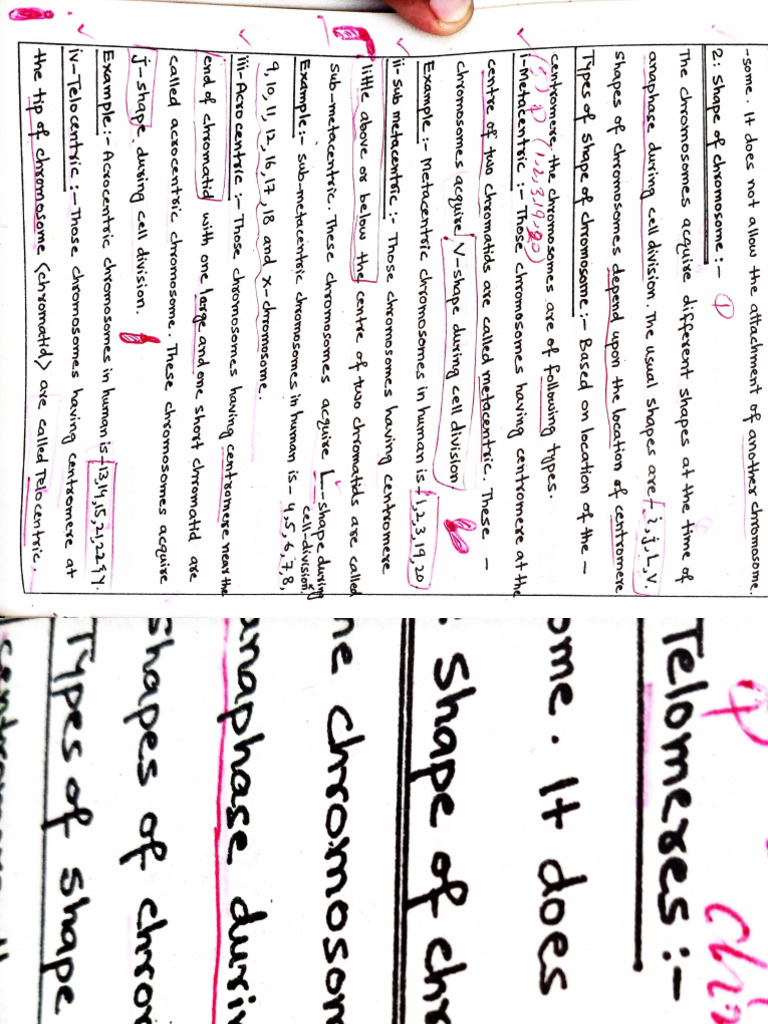 -some. It does not allow the attachment of another chromosome.
2: Shape of chromosome :- ①
The chromosomes acquire different shapes at the time of
anaphase during cell division. The usual shapes are :- i, j, L, V.
shapes of chromosomes depend upon the location of centromere
Types of shape of chromosome :- Based on location of the -
centromere, the chromosomes are of following types.
(1,2,3,19-20)
i-Metacentric :- Those chromosomes having centromere at the
centre of two chromatids are called metacentric. These -
chromosomes acquire V-shape during cell division
Example :- Metacentric chromosomes in human is - 1,2,3,19,20
ii- sub metacentric :- Those chromosomes having centromere
little above or below the centre of two chromatids are called
sub-metacentric. These chromosomes acquire L-shape during
cell-division.
Example:- sub-metacentric chromosomes in human is - 4,5,6,7,8,
9, 10, 11, 12, 16, 17, 18 and x-chromosome.
iii- Acrocentric :- Those chromosomes having centromere near the
end of chromatid with one large and one short chromatid are
called acrocentric chromosome. These chromosomes acquire
j-shape during cell division.
Example :- Acrocentric chromosomes in human is - 13,14,15,21,22 & Y.
iv- Telocentric :- Those chromosomes having centromere at
the tip of chromosome (chromatid) are called Telocentric.
Telomeres :-
ome. It does
: Shape of chr
he chromosom
anaphase durin
shapes of chrom
Types of shape